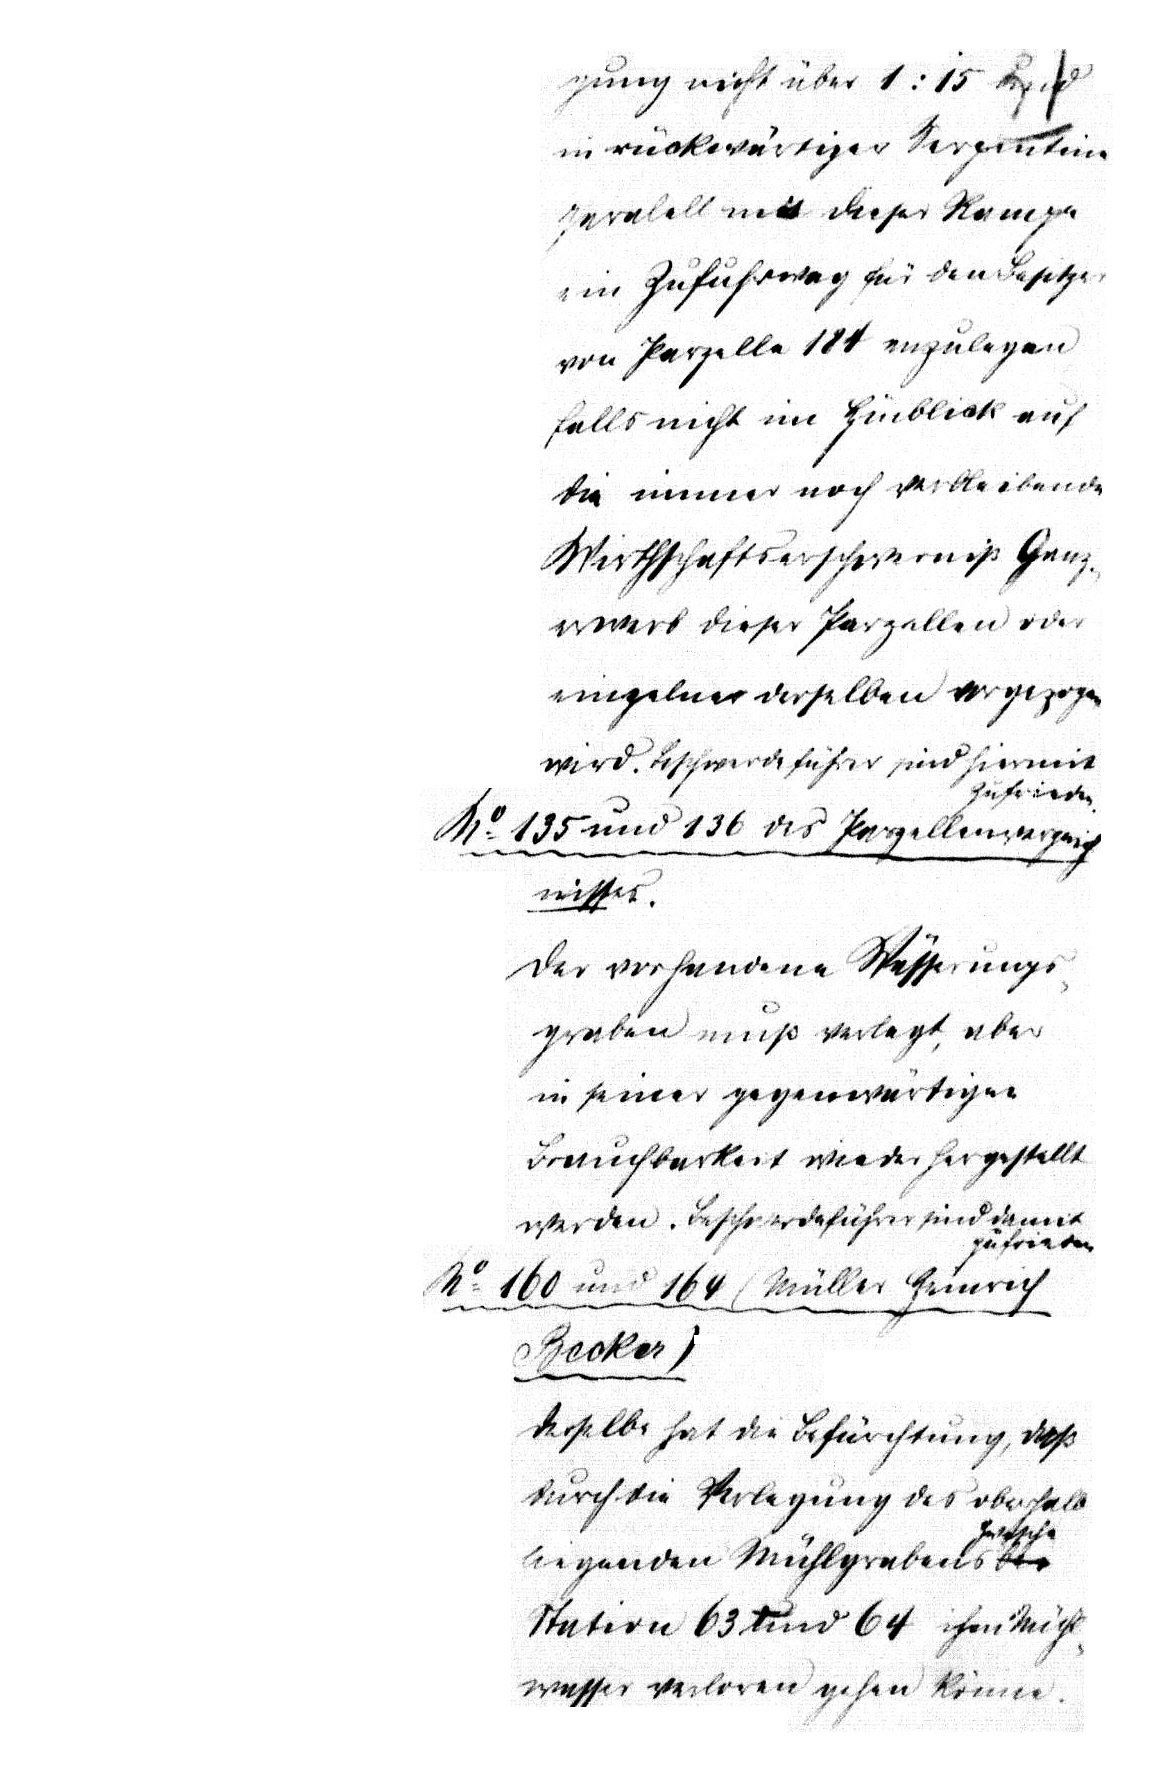 gung nicht über 1:15 und
in rückwärtiger Serpentine
paralell mit dieser Rampe
ein Zufuhrweg für den Besitzer
von Parzelle 184 anzulegen
falls nicht im Hinblick auf
die immer noch verbleibende
Wirthschaftserschwerniß Ganz-
erwerb dieser Parzellen oder
einzelner derselben vorgezogen
wird. Beschwerdeführer sind hiermit
zufrieden.
No 135 und 136 des Parzellenverzeich
nisses.
Der vorhandene Wässerungs-
graben muß verlegt, aber
in seiner gegenwärtigen
Brauchbarkeit wiederhergestellt
werden. Beschwerdeführer sind damit
zufrieden
No 160 und 164 (Müller Heinrich
Becker)
Derselbe hat die Befürchtung, daß
durch die Verlegung des oberhalb
zwische
liegenden Mühlgrabens
Station 63 und 64 ihm Mühl-
wasser verloren gehen könne.